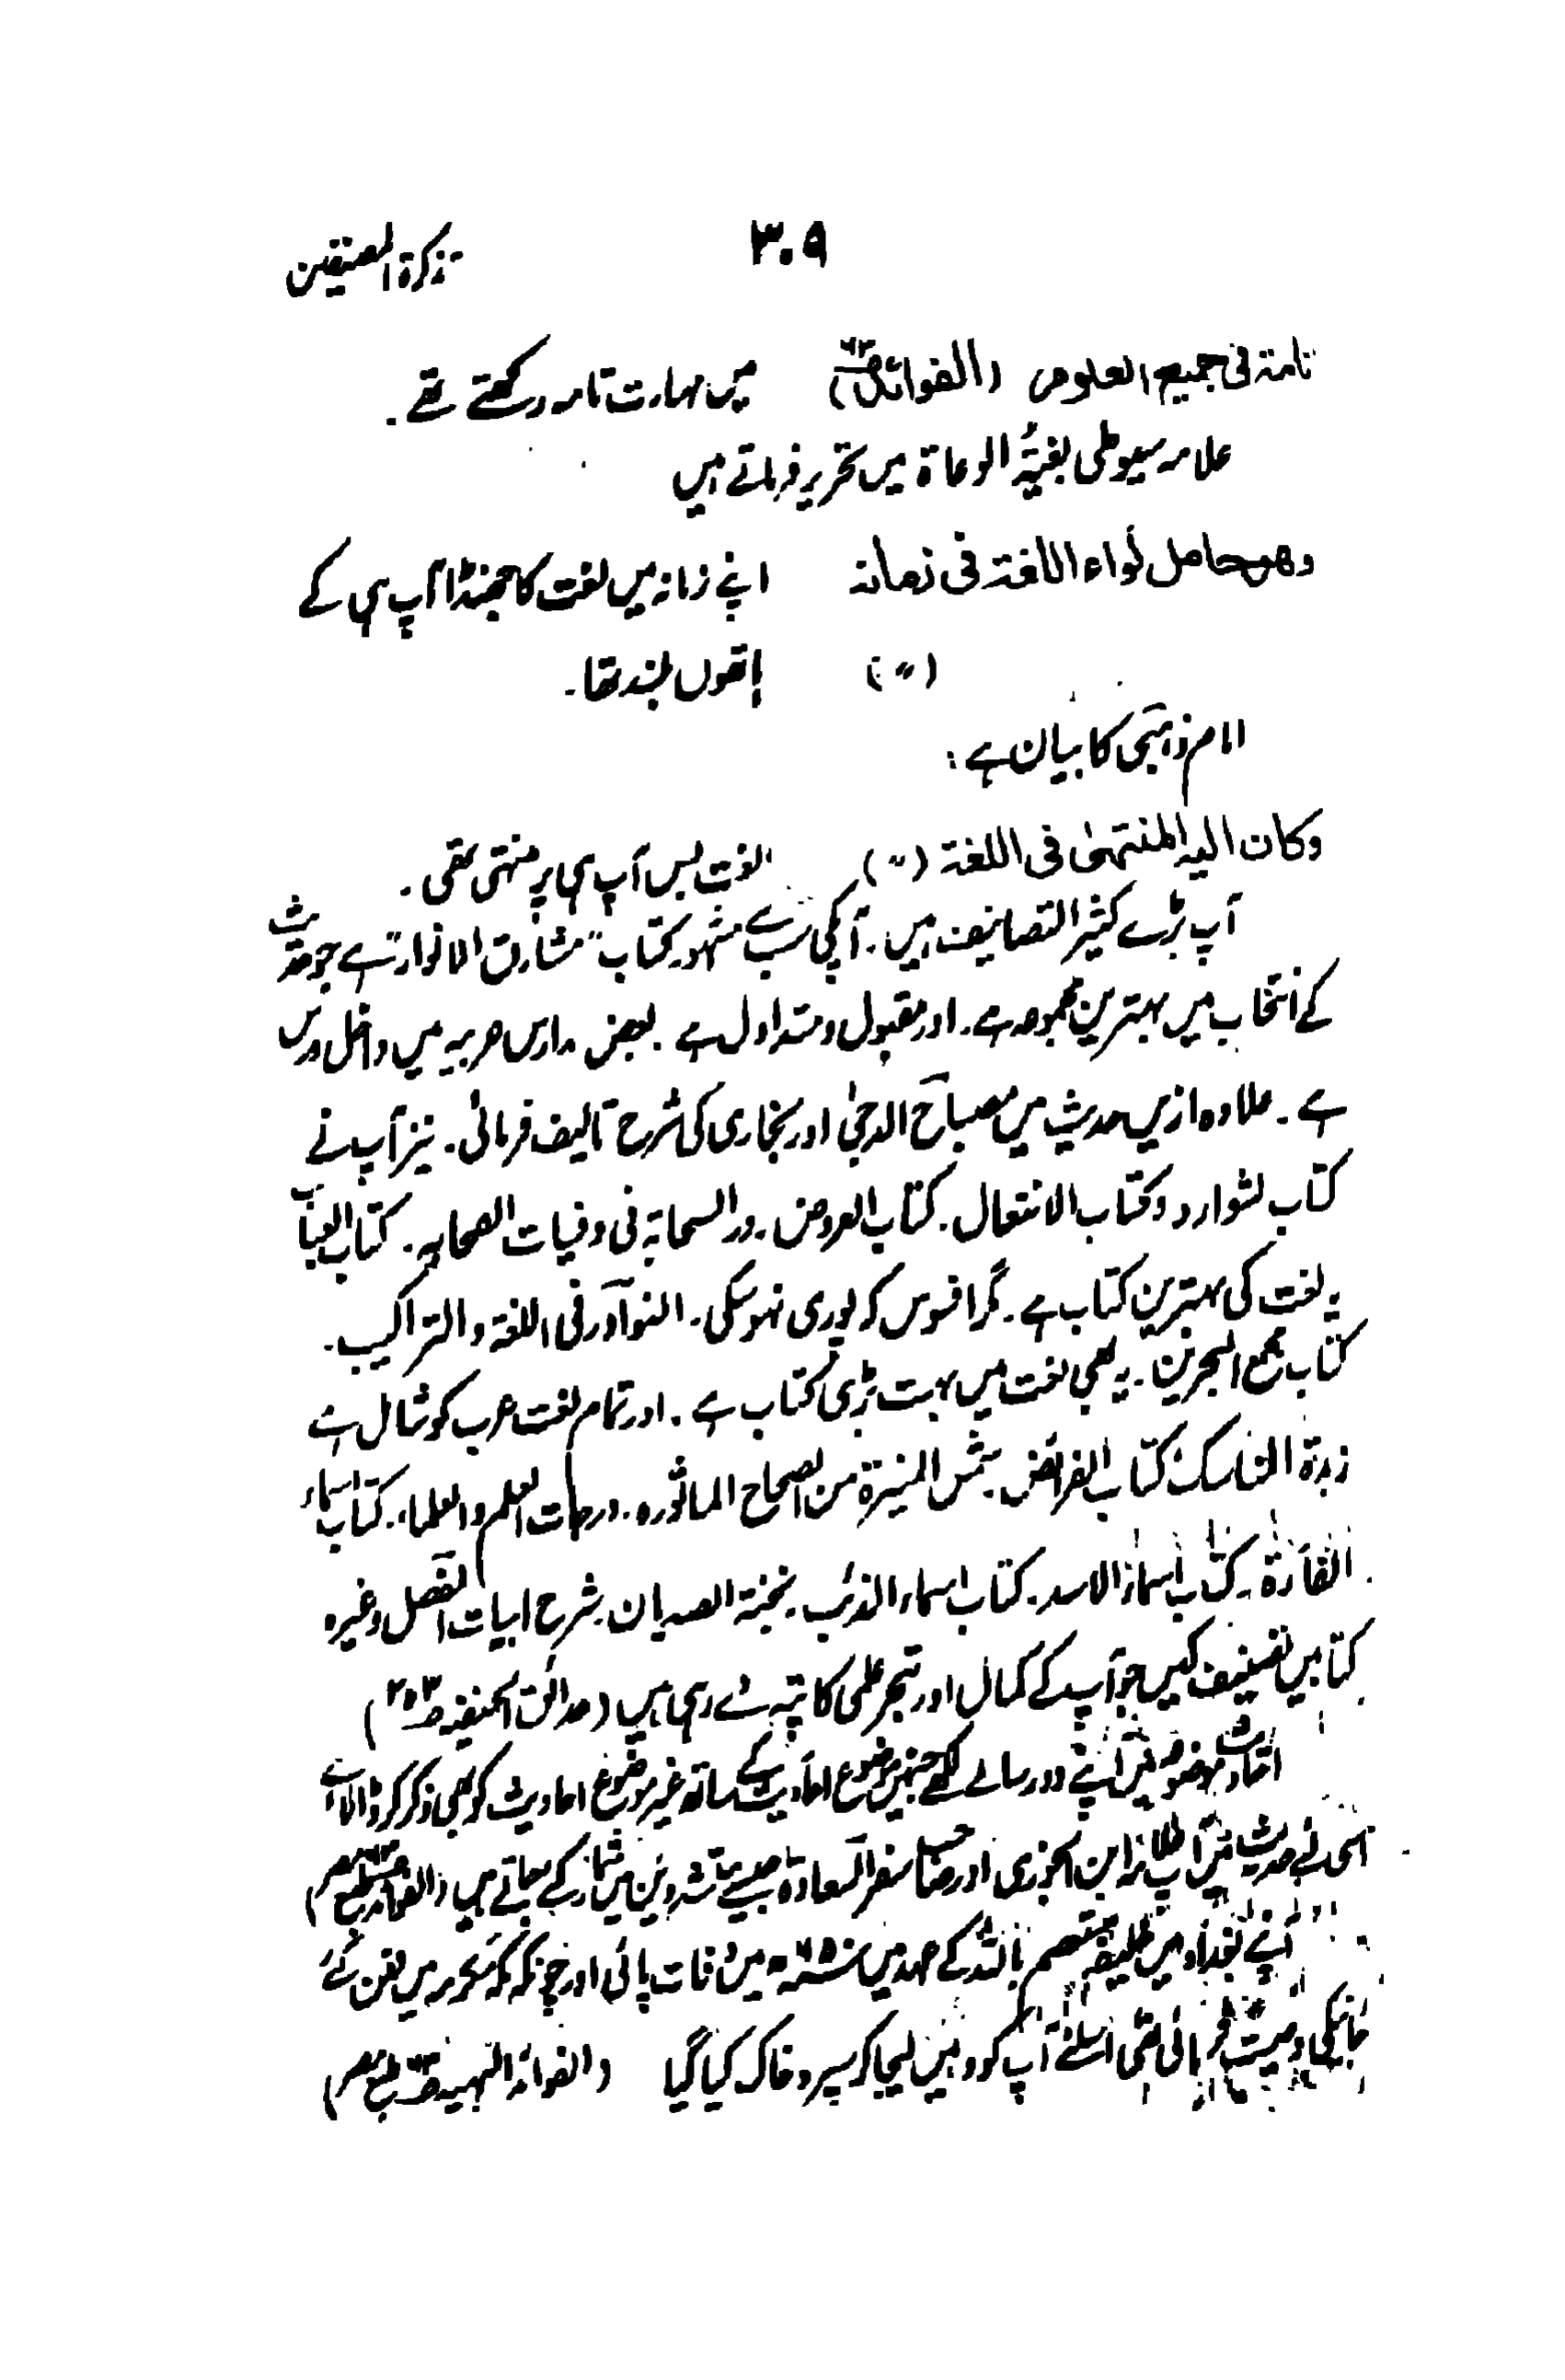 ۳۰۹ تذکرۃ المصنفین
تامۃ فی جمیع العلوم (الفوائد ص۶۳) میں مہارت تامہ رکھتے تھے۔
علامہ سیوطی بغیۃ الوعاۃ میں تحریر فرماتے ہیں
وھو حامل لواء اللغۃ فی زمانہ اپنے زمانہ میں لغت کا جھنڈا آپ ہی کے
(〃) ہاتھوں بلند تھا۔
امام ذہبی کا بیان ہے:
وکان الیہ المنتہیٰ فی اللغۃ (〃) لغت بس آپ ہی پر منتہی تھی۔
آپ بڑے کثیر التصانیف ہیں۔ آپکی سب سے مشہور کتاب ”مشارق الانوار“ ہے جو حدیث
کے انتخاب میں بہترین مجموعہ ہے۔ اور مقبول و متداول ہے۔ بعض مدارس عربیہ میں داخل درس
ہے۔ علاوہ ازیں حدیث میں مصباح الدجیٰ اور بخاری کی شرح تالیف فرمائی۔ نیز آپ نے
کتاب لشوارد وکتاب الانتعال۔ کتاب العروض۔ در السحابۃ فی وفیات الصحابہ۔ کتاب العباب
یہ لغت کی بہترین کتاب ہے۔ مگر افسوس کہ پوری نہو سکی۔ النوادر فی اللغۃ والتراکیب۔
کتاب مجمع البحرین۔ یہ بھی لغت میں بہت بڑی کتاب ہے۔ اور تمام لغت عرب کو شامل ہے
زبدۃ المناسک کتاب الفرائض۔ شمس المنیرۃ من الصحاح الماثورہ۔ درجات العلم والعلماء۔ کتاب اسماء
الفأرۃ۔ کتاب اسماء الاسد۔ کتاب اسماء الذئب۔ بخبتہ الصدیان۔ شرح ابیات المفصل وغیرہ
کتابیں تصنیف کیں جو آپ کے کمال اور تبحر علمی کا پتہ دے رہی ہیں (حدائق الحنفیہ ص۲۵۳)
احادیث موضوعہ میں آپنے دو رسالے لکھے جنہیں موضوع احادیث کے ساتھ غیر موضوع احادیث کو بھی ذکر کر ڈالا ہے
اسی لئے حدیث میں آپ علامہ ابن الجوزی اور صاحب سفر السعادۃ جیسے متشددین میں شمار کئے جاتے ہیں (الفوائد طبع مصر)
آپنے بغداد میں خلیفہ مستعصم باللہ کے عہد میں سنہ ۶۵۰ھ میں وفات پائی اور چونکہ مکہ مکرمہ میں دفن کئے
جانیکی وصیت فرمائی تھی اسلئے آپ کو وہیں لیجا کر سپرد خاک کیا گیا (الفوائد البہیہ طبع مصر)